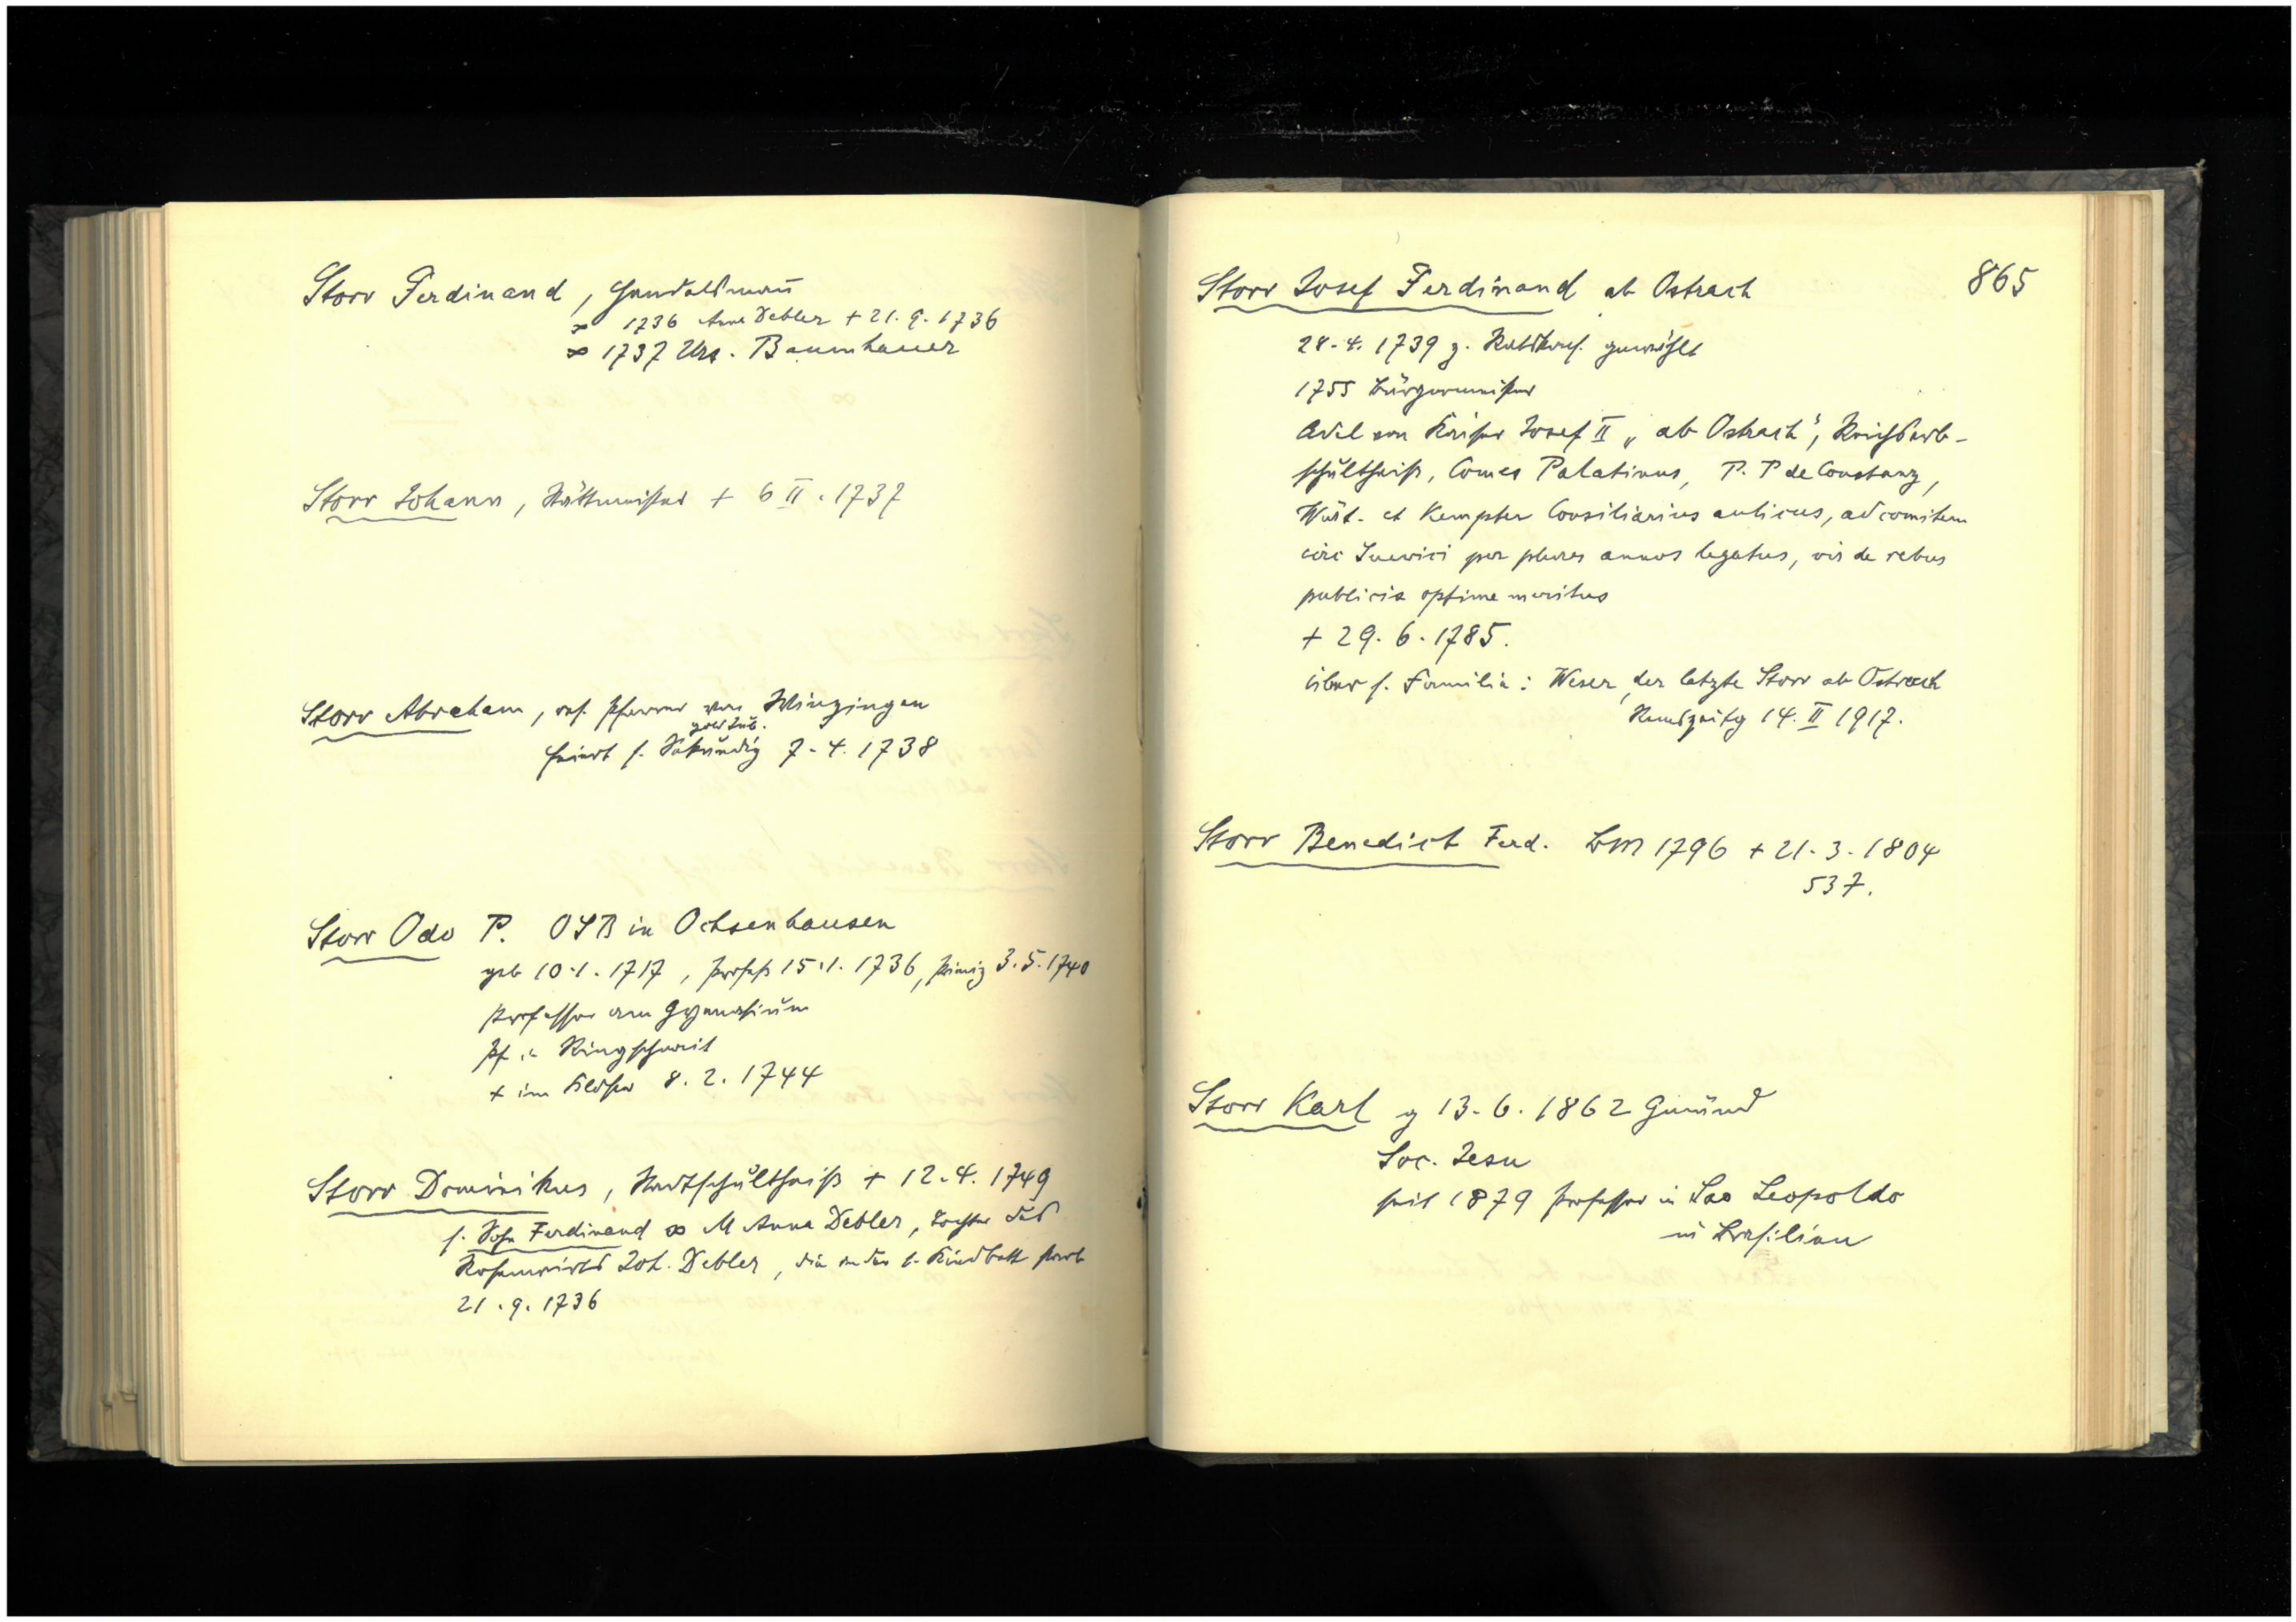 Storr Ferdinand, Handelsmañ
∞ 1736 Anna Debler + 21. 9. 1736
∞ 1737 Urs. Baumhauer
Storr Johann, Stättmeister + 6 II. 1737
Storr Abraham, res. Pfarrer von Winzingen
gold Jub.
feiert s. Sekundiz 7. 4. 1738
Storr Odo P. OSB in Ochsenhausen
geb 10. 1. 1717, Profeß 15. 1. 1736, Primiz 3. 5. 1740
Professor am Gymnasium
Pf. in Ringschnait
+ im Kloster 8. 2. 1744
Storr Dominikus, Stadtschultheiß + 12. 4. 1749
s. Sohn Ferdinand ∞ M Anna Debler, Tochter des
Rosenwirts Joh. Debler, die in der 1. Kindbett starb
21. 9. 1736
865
Storr Josef Ferdinand ab Ostrach
28. 4. 1739 z. Ratskons. gewählt
1755 Bürgermeister
Adel von Kaiser Josef II „ab Ostrach", Reichserb-
schultheiß, Comes Palatinus, P. P de Constanz,
Würt. et Kempter Consiliarius aulicus, ad comitem
circ Suevici per plures annos legatus, vir de rebus
publicis optime meritus
+ 29. 6. 1785.
über s. Familie: Weser, der letzte Storr ab Ostrach
Remszeitg 14. II 1917.
Storr Benedict Ferd. BM 1796 + 21. 3. 1804
537.
Storr Karl g 13. 6. 1862 Gmünd
Soc. Jesu
seit 1879 Professor in Sao Leopoldo
in Brasilien